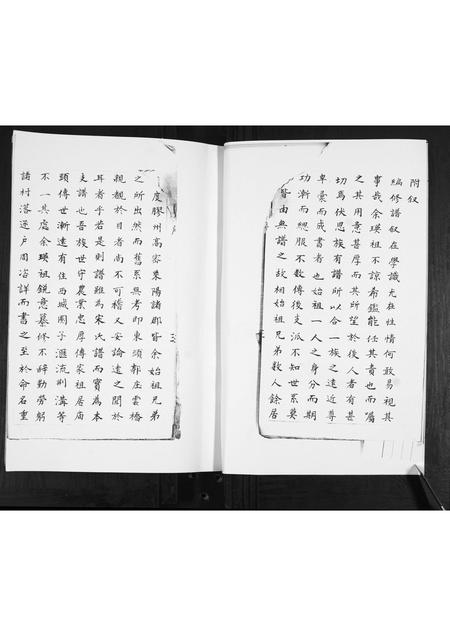 附叙
編修譜叙在學識尤在性情何敢易視其
事哉余瑛祖不諒希鑑能任其責也而囑
之其用意甚厚而其所望於後人者有甚
切焉伏思族有譜所以合一族之遠近尊
卑彙而成書者也始祖一人之身分而期
功漸而緦服不數傳後支派不知世系莫
皆由無譜之故相始祖兄弟數人餘居
度膠州高密萊陽諸郡皆余始祖兄弟
之所出然而舊系無考即東頭郭庄雲橋
親覩於目者尚不可稽又安論遠之聞於
耳者乎若是則譜雖為宋氏譜而實為本
支譜也吾族世守農業忠厚傳家祖居庙
頭傳世漸遠有住西城圈子滙流荆溝等
不一其處余瑛祖銳意纂修不辭勤勞躬
諸村落逐戶周咨詳而書之至於命名重